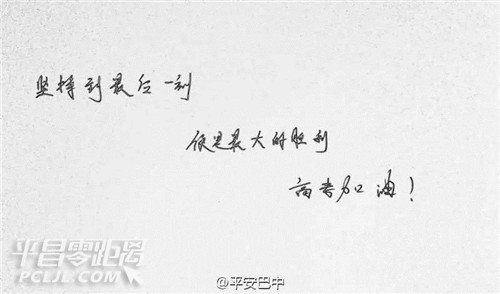 坚持到最后一刻
便是最大的胜利
高考加油！
平昌零距离
PCLJL.COM
@平安巴中